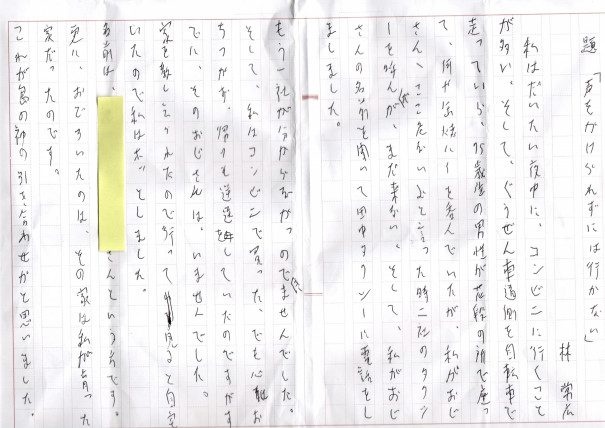 題「声をかけられずには行かない」
林
私はだいたい夜中に、コンビニに行くこと
が多い、そして、ぐうぜん車道側を自転車で
走っていら、75歳位の男性が花段の初で座っ
て、何や缶焼ハイを呑んでいたが、私がおじ
さん、ここ危ないよと言った時二社のタクシ
ーを呼んだが、まだ来ない、そして、私がおじ
さんの名刺を聞いて田中タクシーに電話をし
ましました。
もう一社が分からなかったのでませんでした。
そして、私はコンビニで買った、でも心配
ちつかず、帰りも逆道を していたのですがす
でに、そのおじさんは、いませんでした。
家を教しえてくれたので行って見ると自宅
いたので私はホッとしました。
名前は、 さんという方です。
更に、おどろいたのは、その家は私が育った
家だったのです。
これが島の神の引き合わせかと思いました。